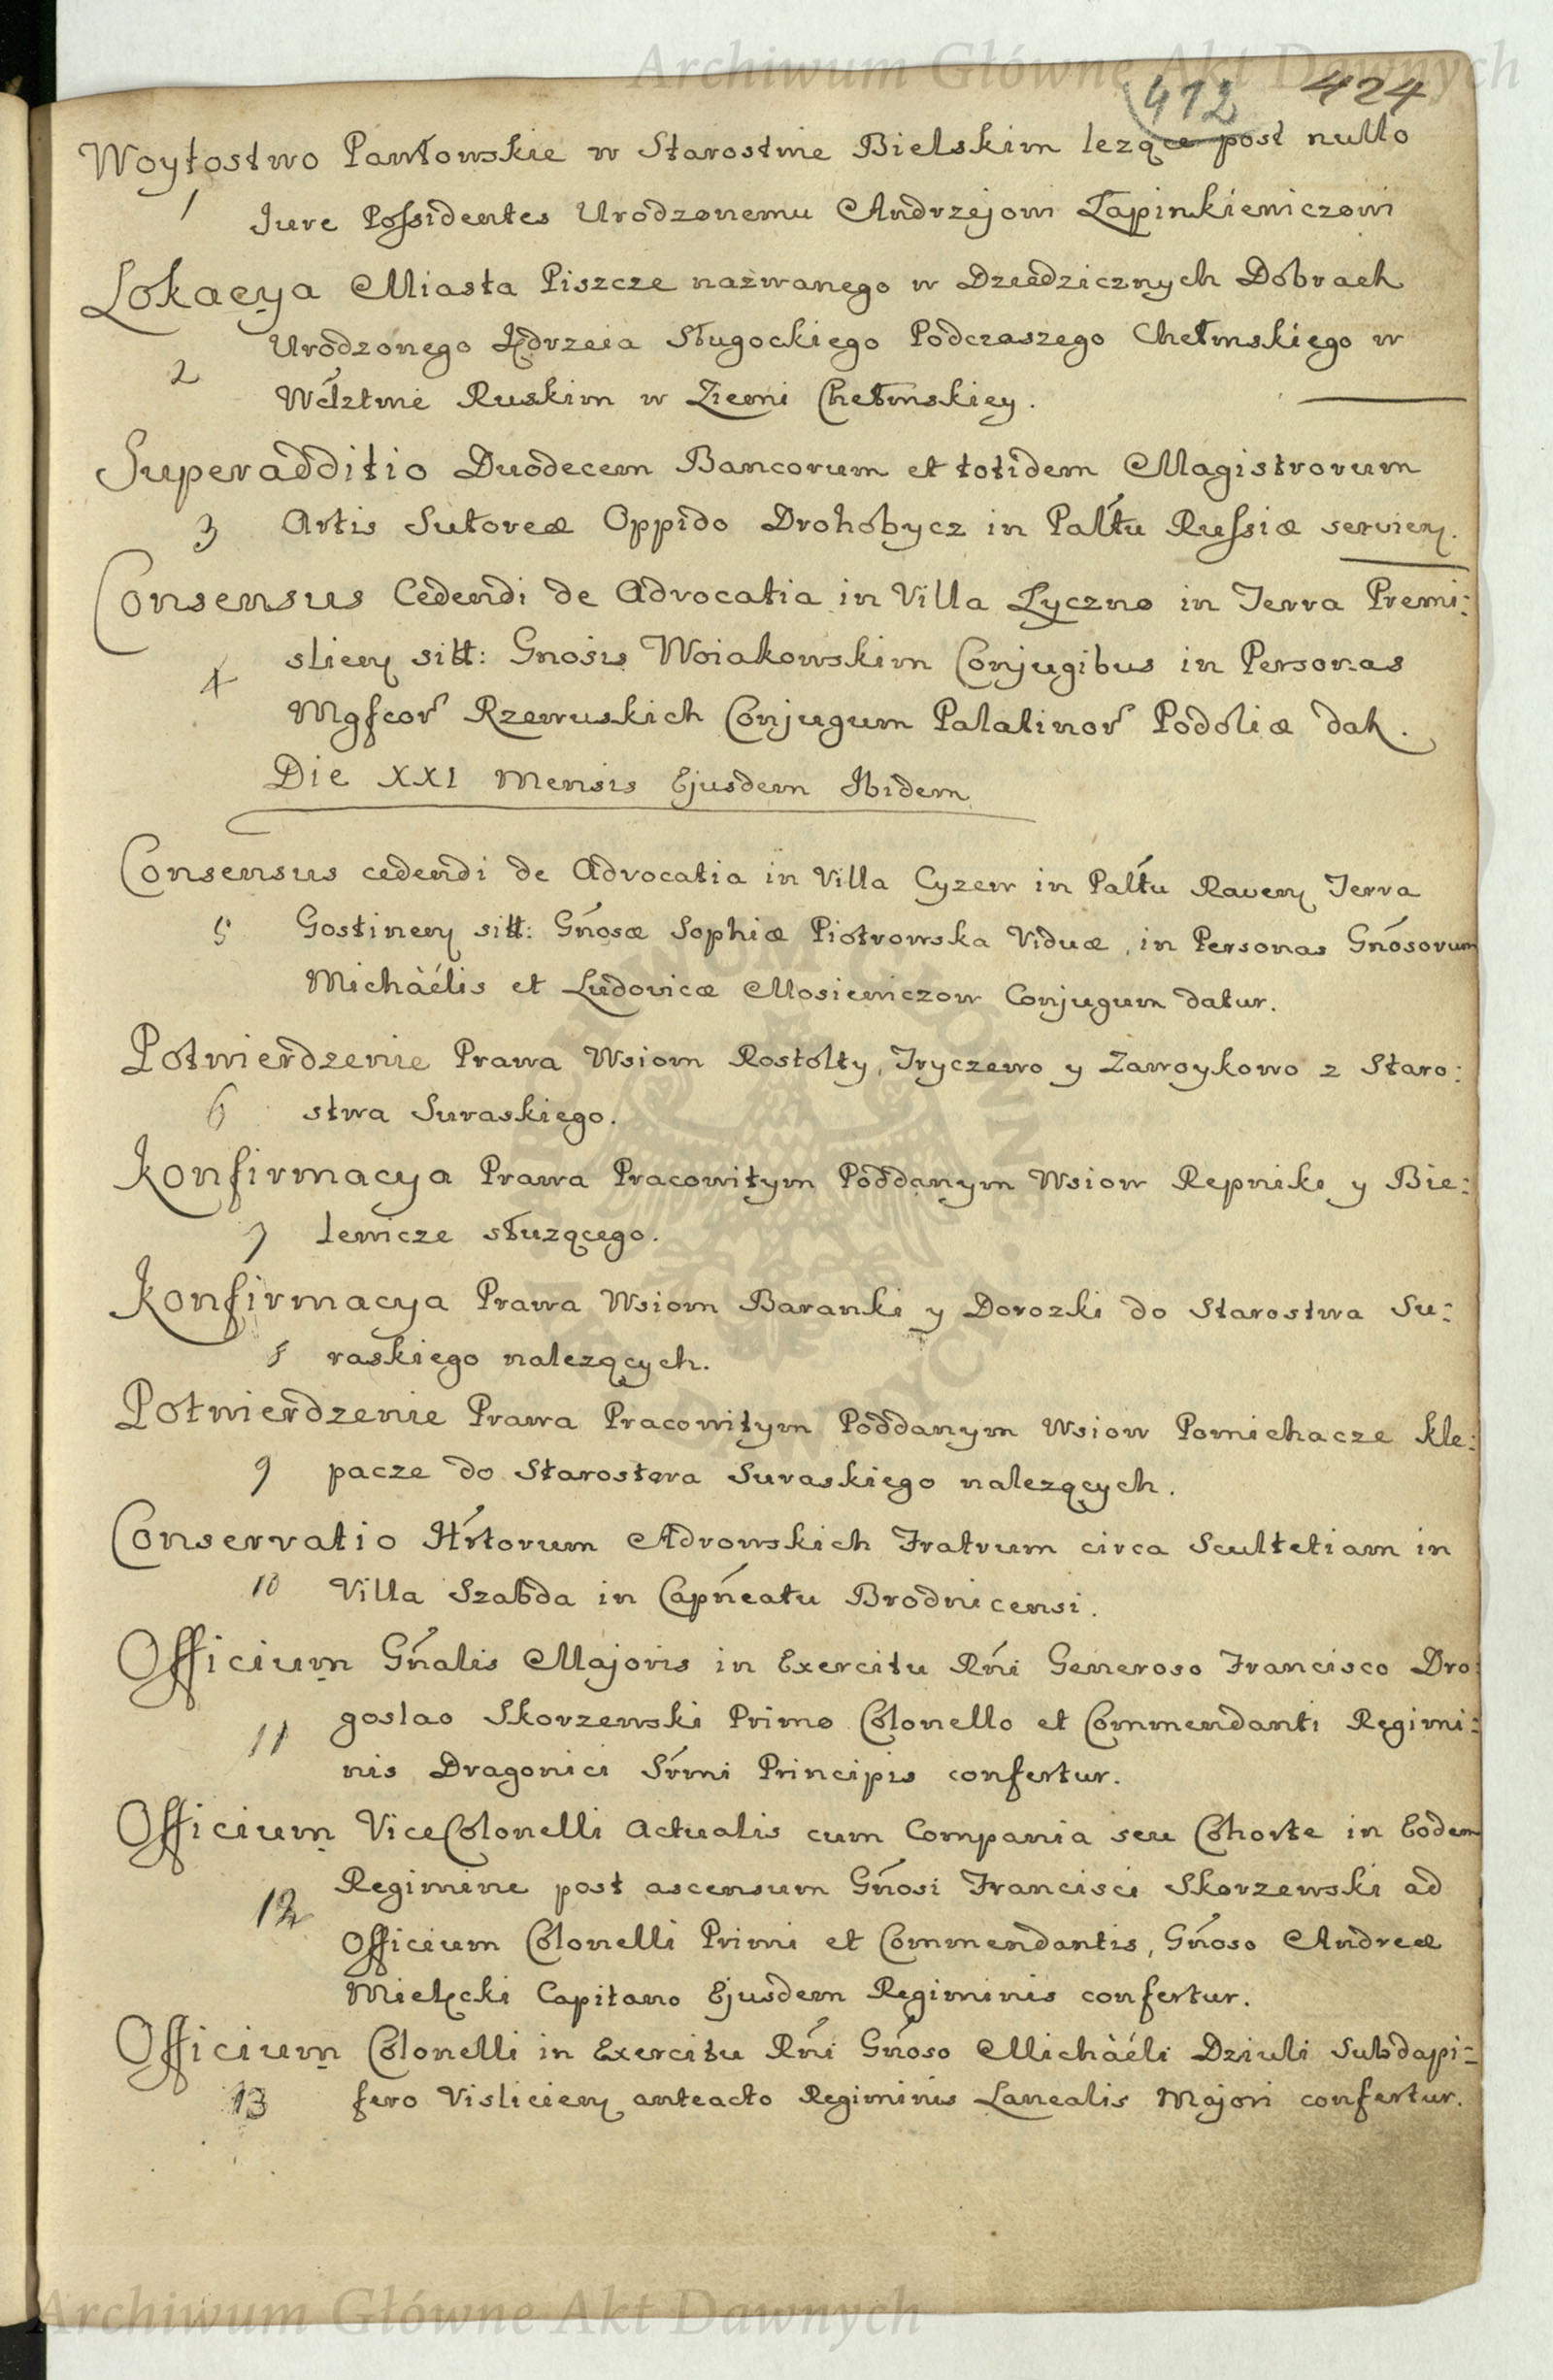 Archiwum Główne Akt Dawnych
412 424
Woytostwo Pawłowskie w Starostwie Bielskim lezące post nullo
1 Jure Possidentes Urodzonemu Andrzejowi Łapinkiewiczowi
Lokacya Miasta Piszcze nazwanego w Dziedzicznych Dobrach
Urodzonego Jędrzeia Sługockiego Podczaszego Chełmskiego w
2
Wdztwie Ruskim w Ziemi Chełmskiey.
Superadditio Duodecem Bancorum et totidem Magistrorum
3 Artis Sutoreæ Oppido Drohobycz in Palttu Russiæ servien.
Consensus Cedendi de Advocatia in Villa Lyczno in Terra Premi:
slien sitt: Gnosis Woiakowskim Conjugibus in Personas
4
Mgfcor Rzewuskich Conjugum Palatinor Podoliæ dat.
Die XXI Mensis Ejusdem Ibidem
Consensus cedendi de Advocatia in Villa Cyzew in Palttu Raven Terra
5 Gostinen sitt: Gnosæ Sophiæ Piotrowska Viduæ, in Personas Gnosorum
Michàélis et Ludovicæ Mosiewiczow Conjugum datur.
Potwierdzenie Prawa Wsiom Rostołty, Tryczewo y Zawoykowo z Staro:
6 stwa Suraskiego.
Konfirmacya Prawa Pracowitym Poddanym Wsiow Repniki y Bie:
7 lewicze słuzącego.
Konfirmacya Prawa Wsiom Baranki y Dorozki do Starostwa Su:
8 raskiego nalezących.
Potwierdzenie Prawa Pracowitym Poddanym Wsiow Pomichacze Kle:
9 pacze do Starostwa Suraskiego nalezących.
Conservatio Hrtorum Adrowskich Fratrum circa Scultetiam in
10 Villa Szabda in Capneatu Brodnicensi.
Officium Gnalis Majoris in Exercitu Rni Generoso Francisco Dro:
11 goslao Skorzewski Primo Colonello et Commendanti Regimi:
nis Dragonici Srmi Principis confertur.
Officium ViceColonelli Actualis cum Compania seu Cohorte in Eodem
Regimine post ascensum Gnosi Francisci Skorzewski ad
12
Officium Colonelli Primi et Commendantis, Gnoso Andreæ
Mielzcki Capitano Ejusdem Regiminis confertur.
Officium Colonelli in Exercitu Rni Gnoso Michàéli Dziuli Subdapi:
13 fero Vislicien anteacto Regiminis Lanealis Majori confertur.
Archiwum Główne Akt Dawnych